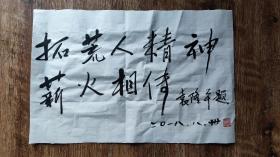 拓荒人精神
薪火相传
袁隆平题
二〇一八.八.卅